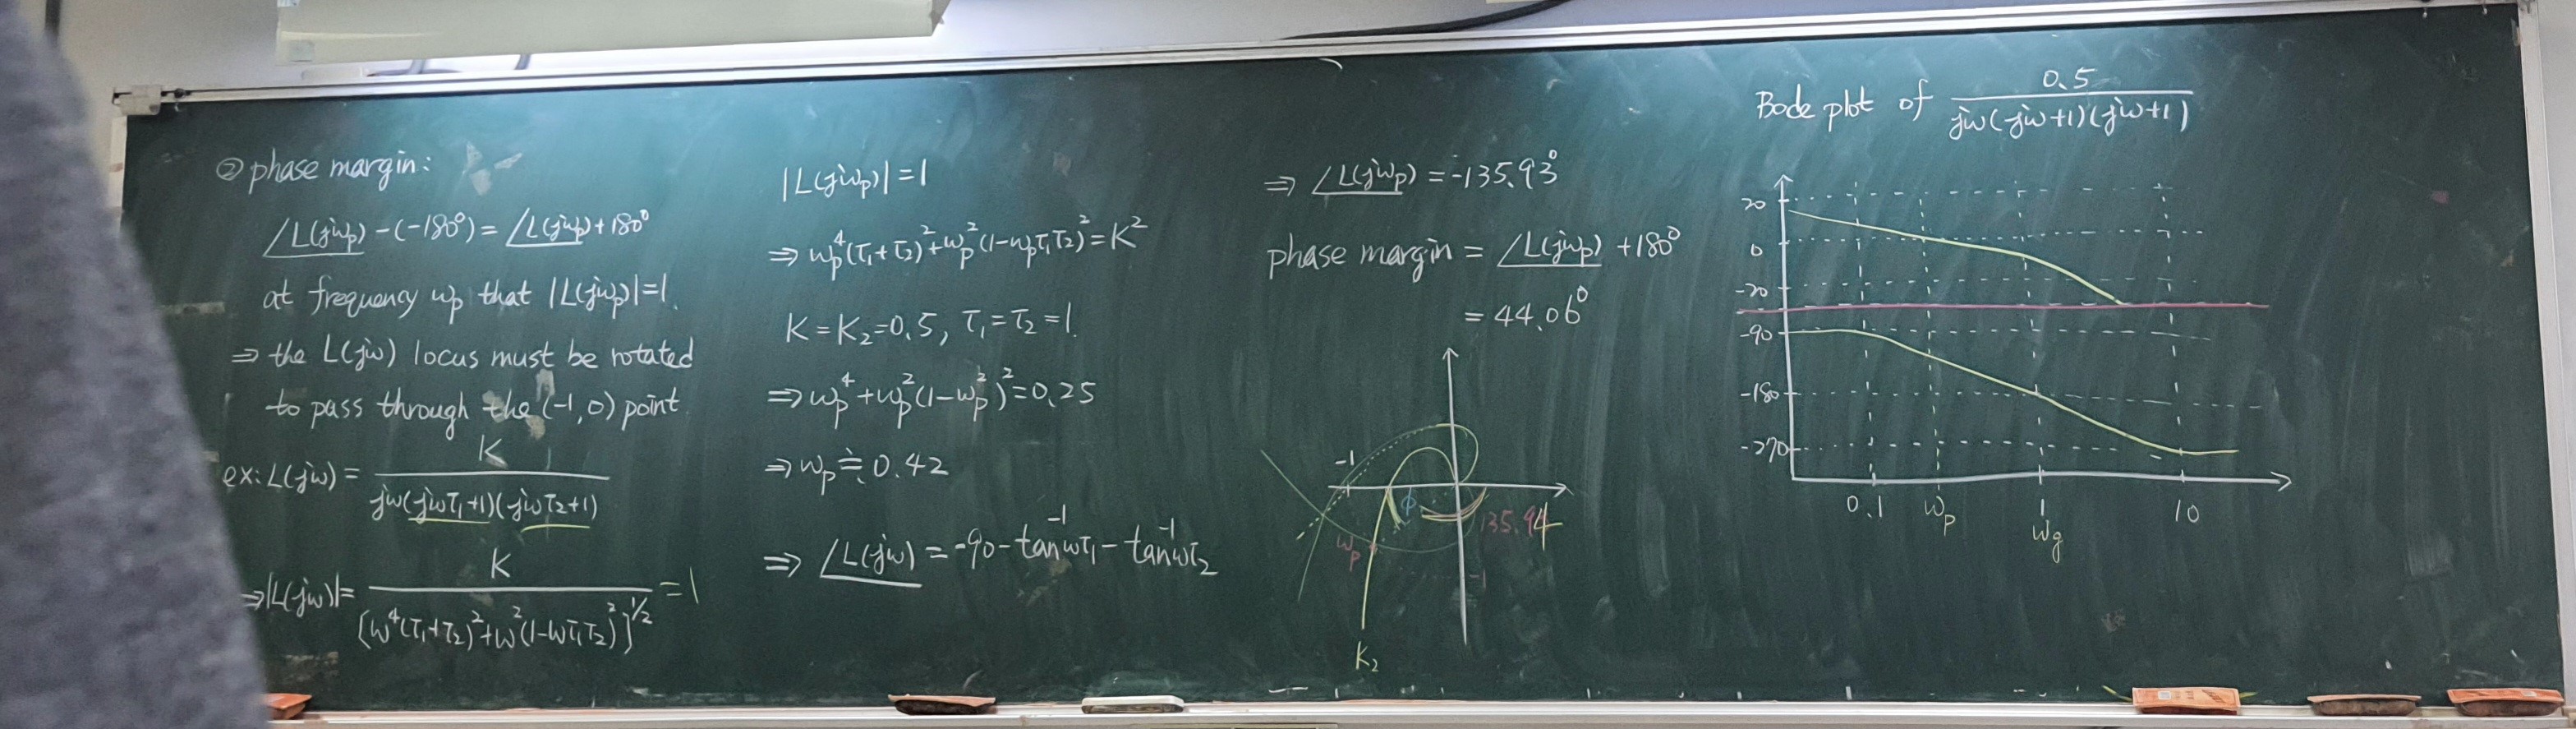 ② phase margin:
∠L(jωp) - (-180°) = ∠L(jωp) + 180°
at frequency ωp that |L(jωp)|=1.
⇒ the L(jω) locus must be rotated
to pass through the (-1, 0) point.
ex: L(jω) = K / jω(jωτ1+1)(jωτ2+1)
⇒ |L(jω)| = K / [ω^4(τ1+τ2)^2+ω^2(1-ωτ1τ2)^2]^1/2 = 1
|L(jωp)| = 1
⇒ ωp^4(τ1+τ2)^2+ωp^2(1-ωpτ1τ2)^2 = K^2
K = K2 = 0.5, τ1 = τ2 = 1.
⇒ ωp^4+ωp^2(1-ωp^2)^2 = 0.25
⇒ ωp ≒ 0.42
⇒ ∠L(jω) = -90 - tan^-1 ωτ1 - tan^-1 ωτ2
⇒ ∠L(jωp) = -135.93°
phase margin = ∠L(jωp) + 180°
= 44.06°
-1
φ
135.94
ωp
-1
K2
Bode plot of 0.5 / jω(jω+1)(jω+1)
20
0
-20
-90
-180
-270
0.1 ωp 1 10
ωg